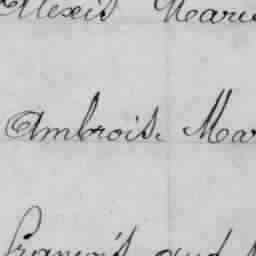 Alexis Marie
Ambrois. Mar
François and